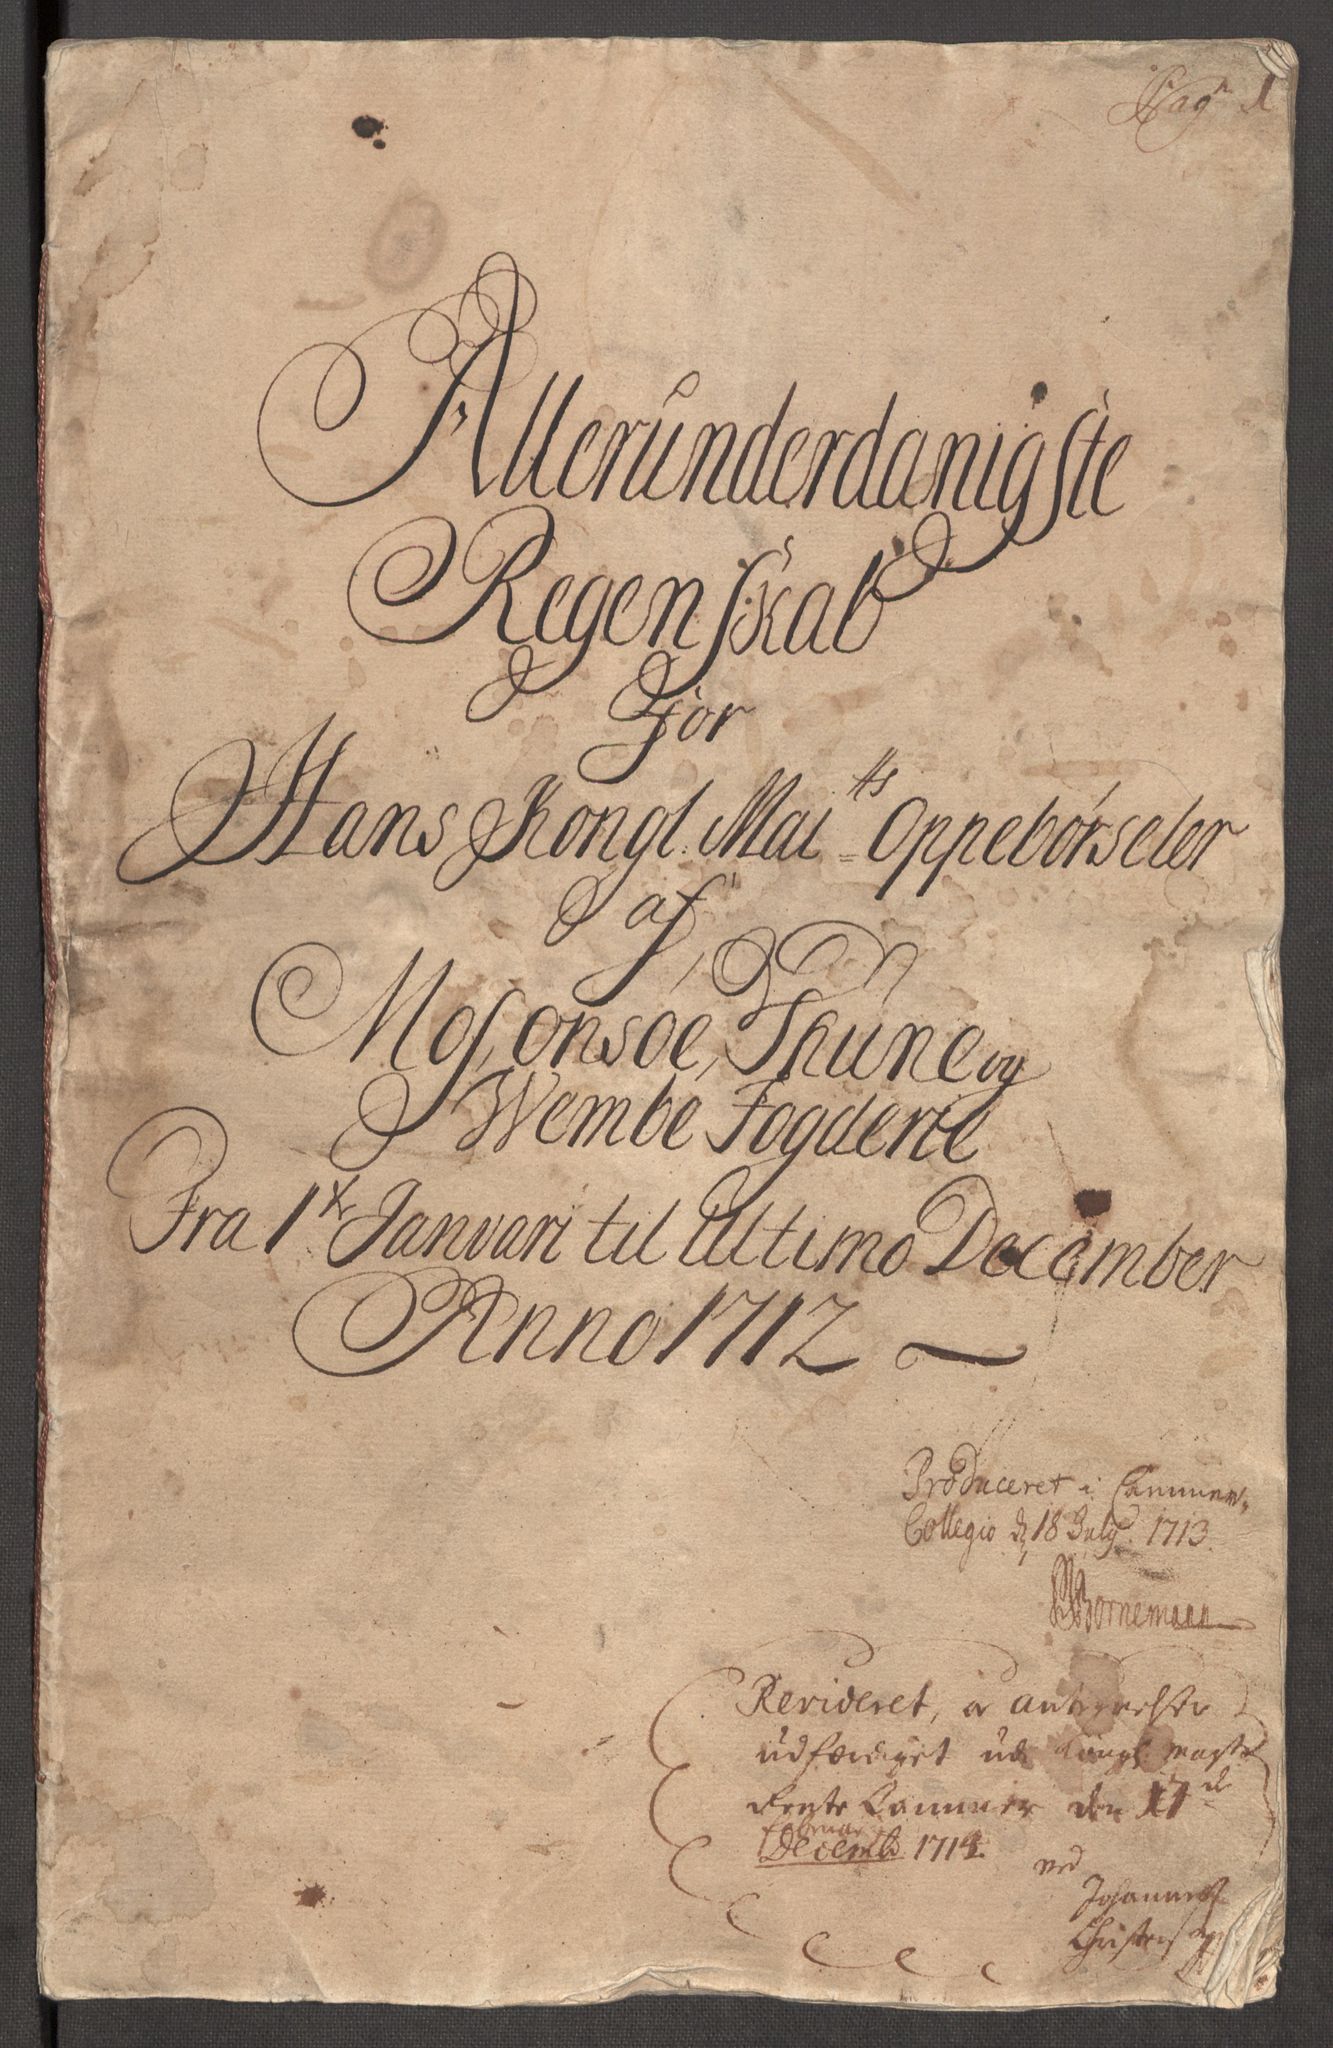 Pag 1
Allerunderdanigste
Regenskab
for
Hans Kongl. Mai.ts Oppebörseler
af
Mos, onsöe, Thune og
Wembe Fogderie
Fra 1 Januari til Ultimo December
Anno 1712
Produceret i Cammer-
Collegio d 18 July 1713.
Bornemann
Revideret, og antegnelser
udfærdiget ud Kongl mayts
Rente Cammer den 17de
Februar
Decemb 1714
ved
Johannes
Christensen